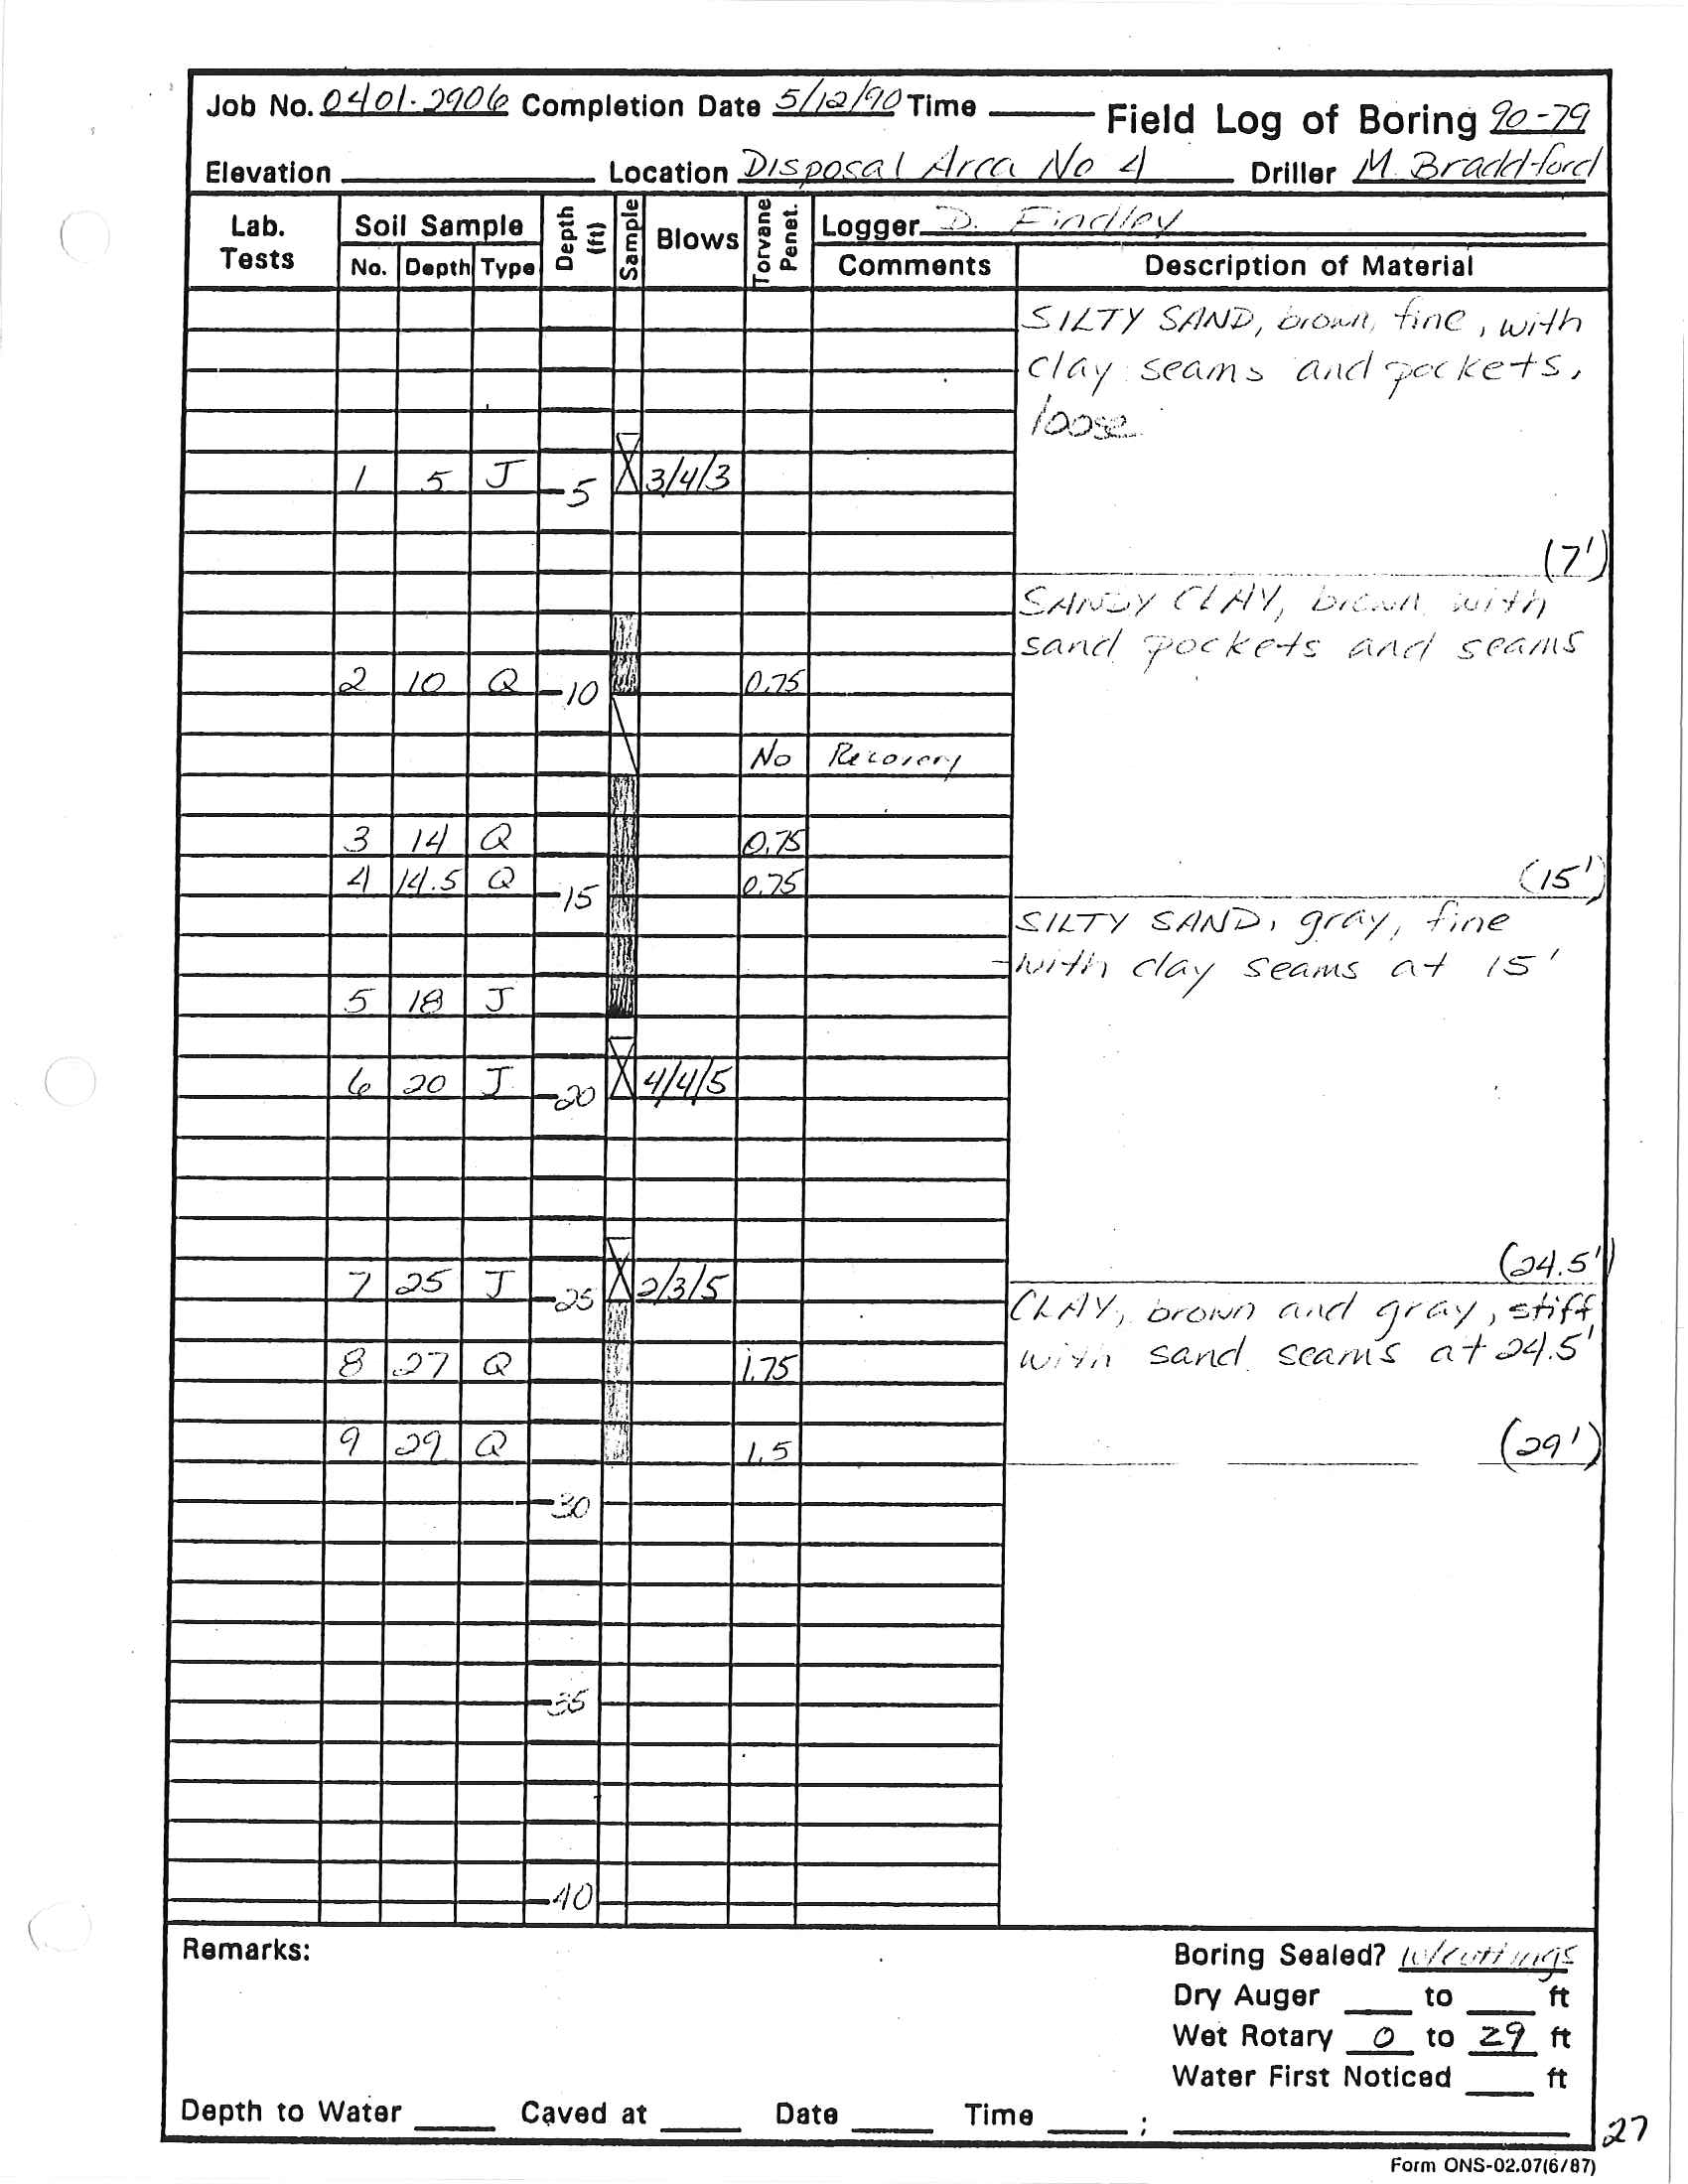 Job No. 0401-2906 Completion Date 5/12/90 Time ____ Field Log of Boring 90-79
Elevation ____ Location Disposal Area No 4 Driller M. Braddford
Lab. Tests Soil Sample Depth (ft) Sample Blows Torvane Penet. Logger D. Findley
No. Depth Type Comments Description of Material
SILTY SAND, brown, fine, with
clay seams and pockets,
loose
1 5 J 5 3/4/3
(7')
SANDY CLAY, brown with
sand pockets and seams
2 10 Q 10 0.75
No Recovery
3 14 Q 0.75
4 14.5 Q 15 0.75 (15')
SILTY SAND, gray, fine
-with clay seams at 15'
5 18 J
6 20 J 20 4/4/5
(24.5')
7 25 J 25 2/3/5
CLAY, brown and gray, stiff
with sand seams at 24.5'
8 27 Q 1.75
9 29 Q 1.5 (29')
30
35
40
Remarks: Boring Sealed? w/cuttings
Dry Auger ____ to ____ ft
Wet Rotary 0 to 29 ft
Water First Noticed ____ ft
Depth to Water ____ Caved at ____ Date ____ Time ____ ; ____
27
Form ONS-02.07(6/87)